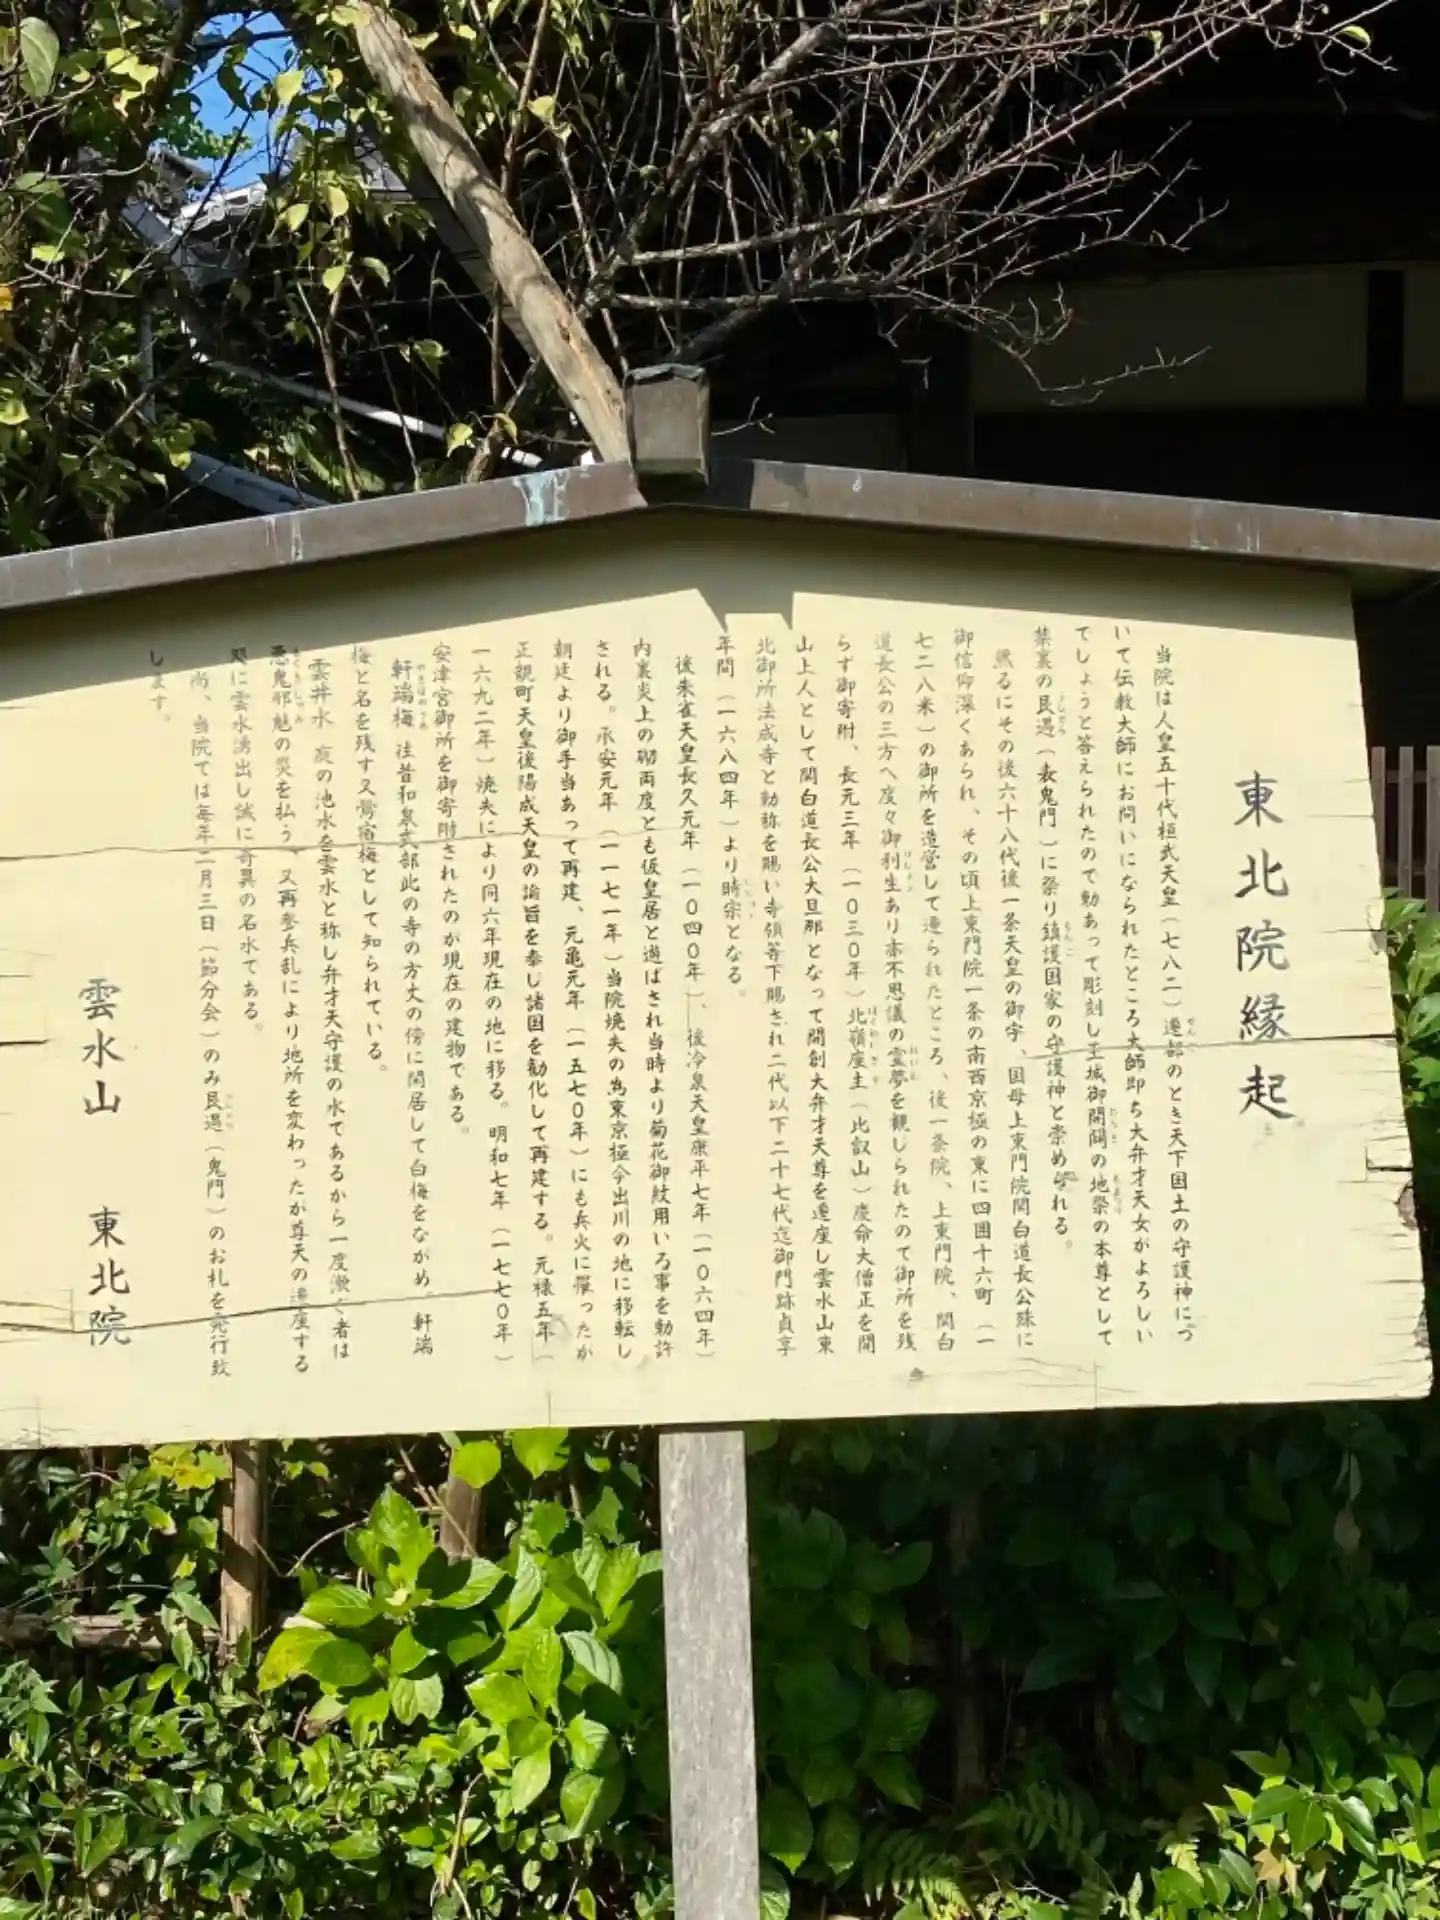 東北院縁起
当院は人皇五十代桓武天皇(七八二)遷都のとき天下国土の守護神につ
いて伝教大師にお問いになられたところ大師即ち大弁才天女がよろしい
でしょうと答えられたので勅あって彫刻し王城御開闢の地祭の本尊として
禁裏の艮隅(表鬼門)に祭り鎮護国家の守護神と崇められる。
然るにその後六十八代後一条天皇の御宇、国母上東門院関白道長公殊に
御信仰深くあられ、その頃上東門院一条の南西京極の東に四囲十六町(一
七二八米)の御所を造営して遷られたところ、後一条院、上東門院、関白
道長公の三方へ度々御利生あり亦不思議の霊夢を観じられたので御所を残
らず御寄附、長元三年(一〇三〇年)北嶺座主(比叡山)慶命大僧正を開
山上人として関白道長公大旦那となって開創大弁才天尊を遷座し雲水山東
北御所法成寺と勅称を賜い寺領等下賜され二代以下二十七代迄御門跡貞享
年間(一六八四年)より時宗となる。
後朱雀天皇長久元年(一〇四〇年)、後冷泉天皇康平七年(一〇六四年)
内裏炎上の砌両度とも仮皇居と遊ばされ当時より菊花御紋用いる事を勅許
される。承安元年(一一七一年)当院焼失の為東京極今出川の地に移転し
朝廷より御手当あって再建、元亀元年(一五七〇年)にも兵火に罹ったが
正親町天皇後陽成天皇の論旨を奉し諸国を勧化して再建する。元禄五年(
一六九二年)焼失により同六年現在の地に移る。明和七年(一七七〇年)
安津宮御所を御寄附されたのが現在の建物である。
軒端梅 往昔和泉式部此の寺の方丈の傍に閑居して白梅をながめ。軒端
梅と名を残す又鶯宿梅として知られている。
雲井水 庭の池水を雲水と称し弁才天守護の水であるから一度漱ぐ者は
悪鬼邪魅の災を払う、又再参兵乱により地所を変わったが尊天の遷座する
処に雲水湧出し誠に奇異の名水である。
尚、当院では毎年二月三日(節分会)のみ艮隅(鬼門)のお札を発行致
します。
雲水山 東北院